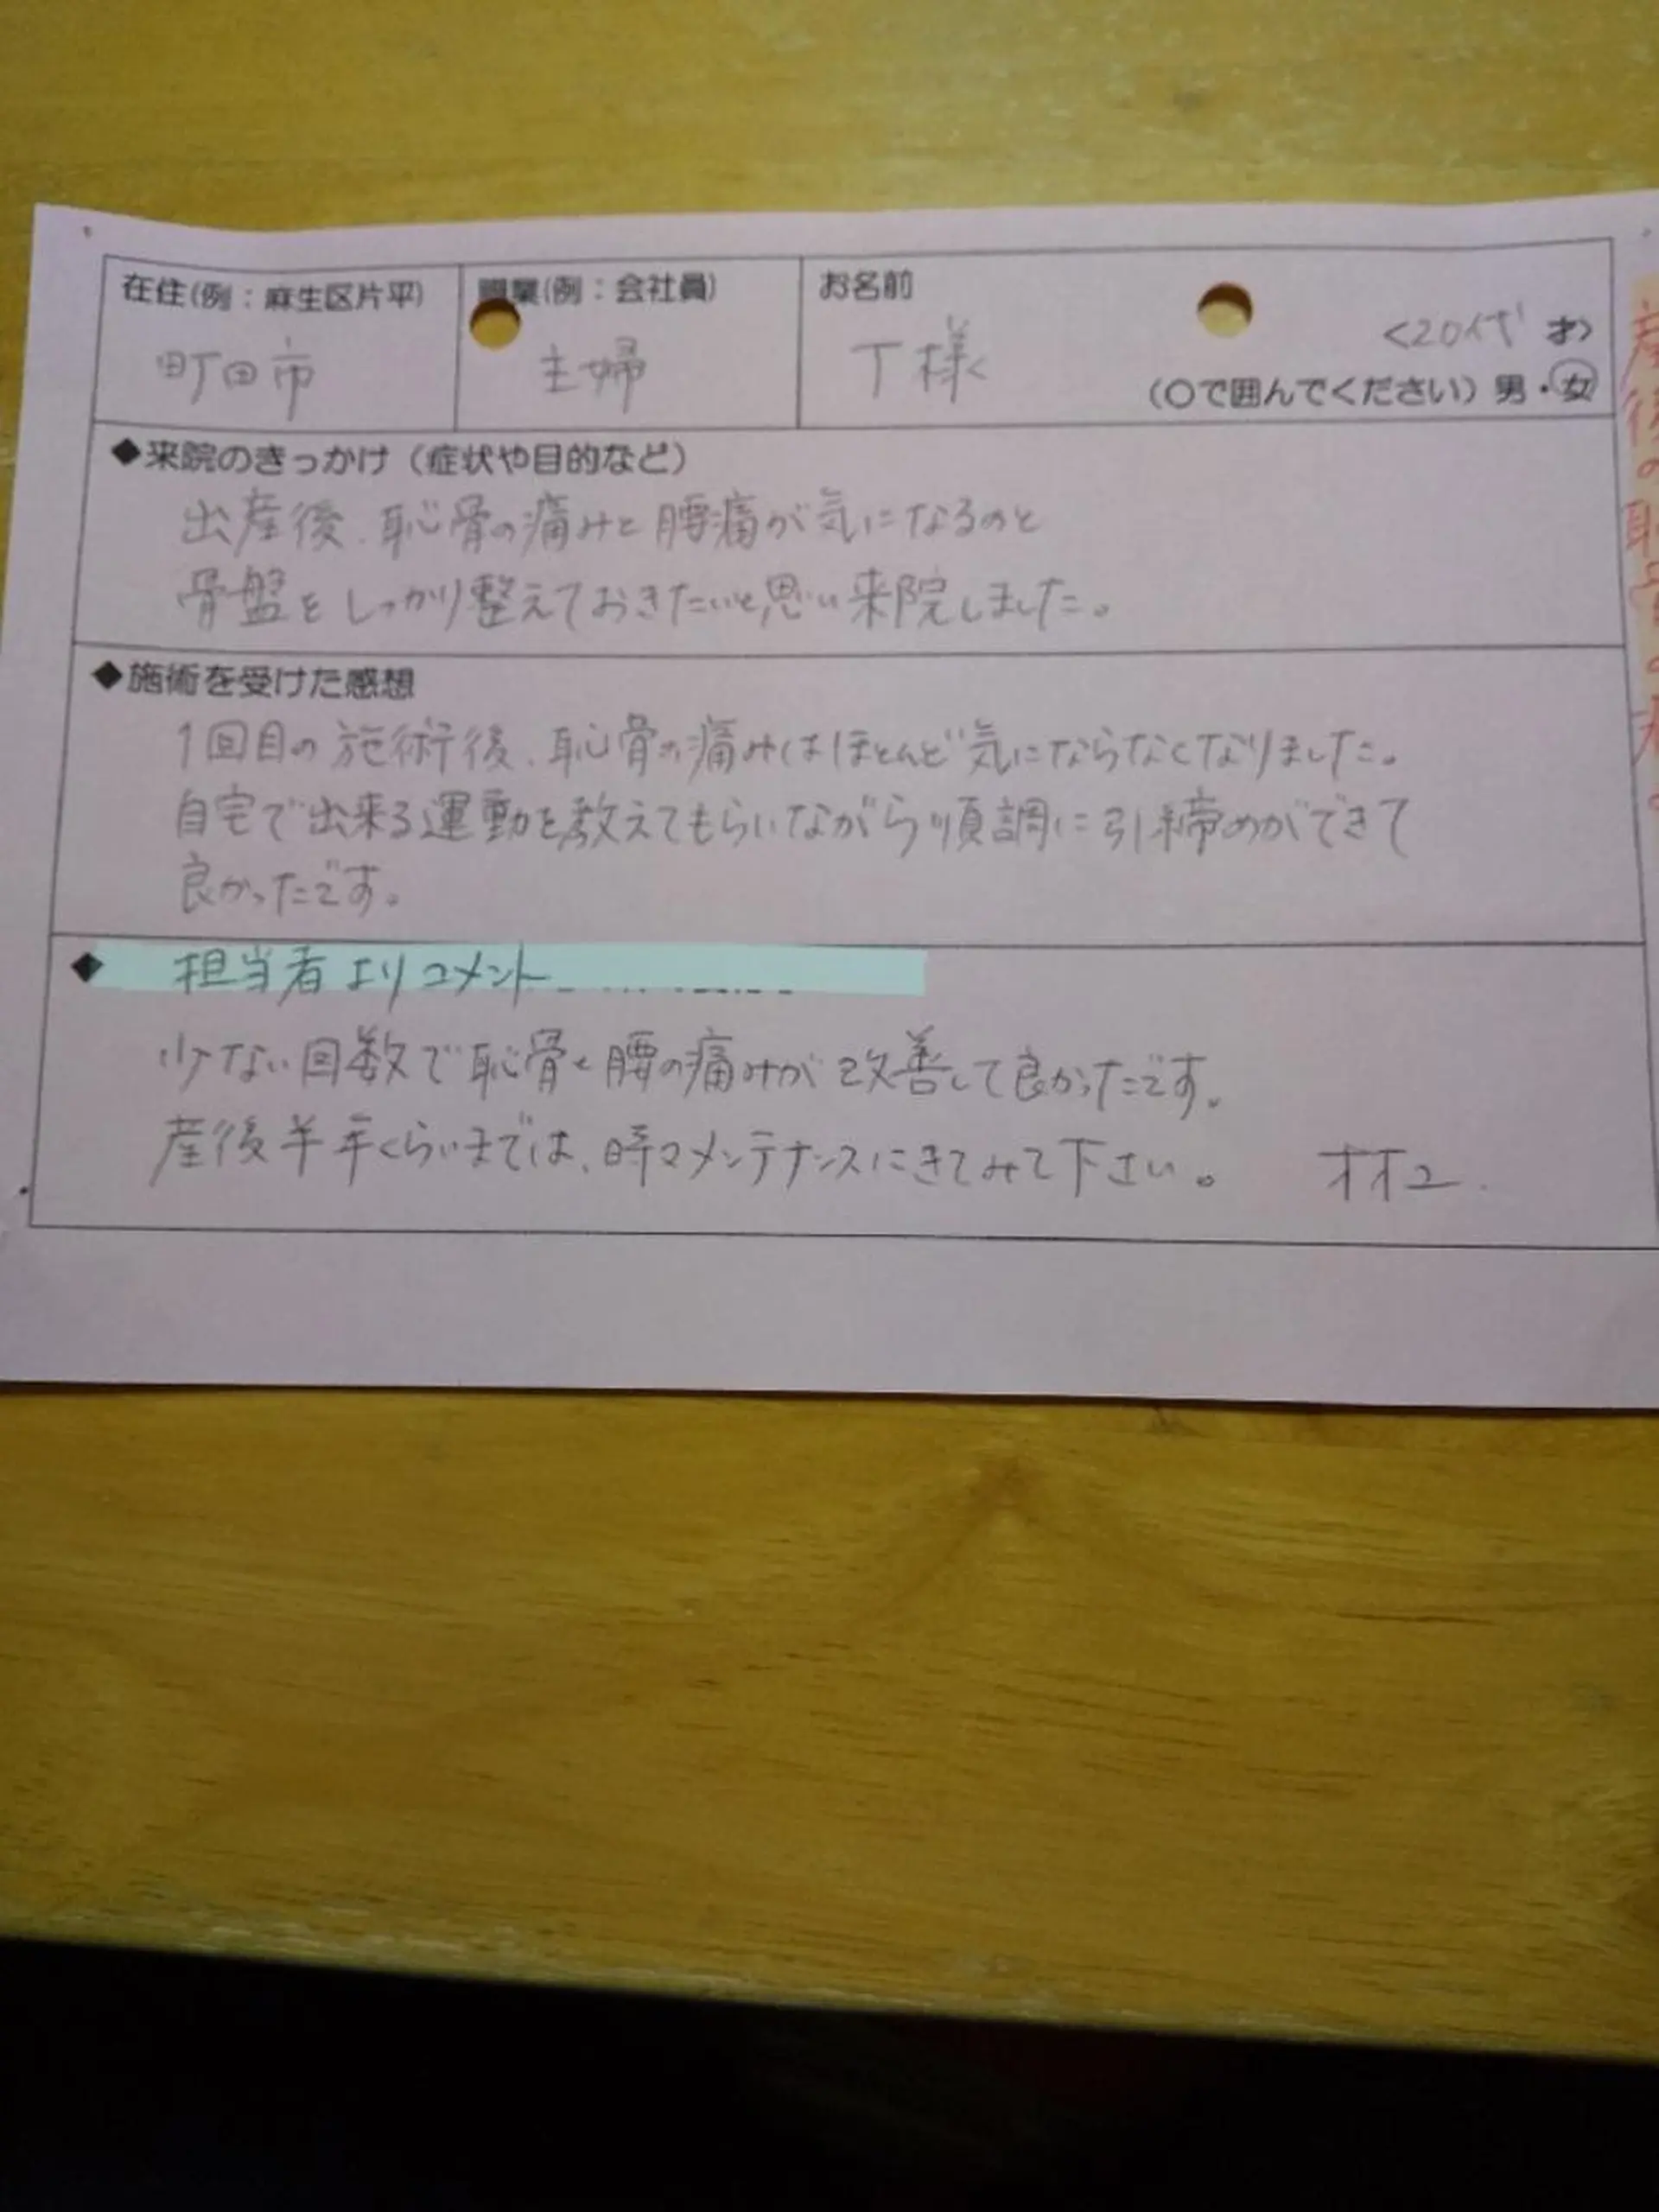 在住(例：麻生区片平)
町田市
職業(例：会社員)
主婦
お名前
T様
<20代 才>
(〇で囲んでください) 男・女
◆来院のきっかけ（症状や目的など）
出産後、恥骨の痛みと腰痛が気になるのと
骨盤をしっかり整えておきたいと思い来院しました。
◆施術を受けた感想
1回目の施術後、恥骨の痛みはほとんど気にならなくなりました。
自宅で出来る運動を教えてもらいながら順調に引締めができて
良かったです。
◆ 担当者よりコメント
少ない回数で恥骨と腰の痛みが改善して良かったです。
産後半年くらいまでは、時々メンテナンスにきてみて下さい。
産後の恥骨の